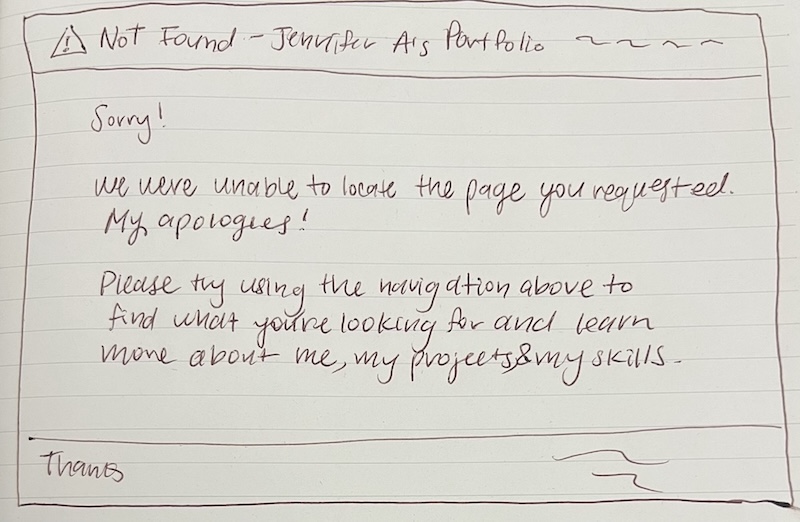 Not Found - Jennifer A's Portfolio
Sorry!
We were unable to locate the page you requested.
My apologies!
Please try using the navigation above to
find what you're looking for and learn
more about me, my projects & my skills.
Thanks